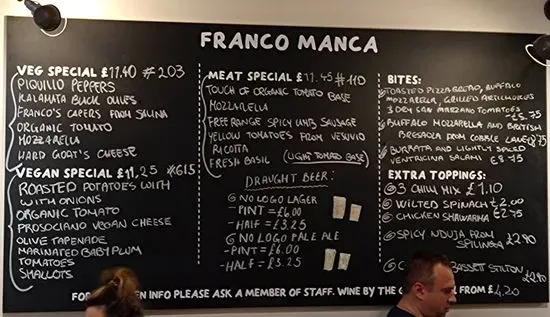 FRANCO MANCA
VEG SPECIAL £11.40 #203
PIQUILLO PEPPERS
KALAMATA BLACK OLIVES
FRANCO'S CAPERS FROM SALINA
ORGANIC TOMATO
MOZZARELLA
HARD GOAT'S CHEESE
VEGAN SPECIAL £11.25 #615
ROASTED POTATOES WITH
WITH ONIONS
ORGANIC TOMATO
PROSOCIANO VEGAN CHEESE
OLIVE TAPENADE
MARINATED BABY PLUM
TOMATOES
SHALLOTS
MEAT SPECIAL £11.45 #110
TOUCH OF ORGANIC TOMATO BASE
MOZZARELLA
FREE RANGE SPICY SAUSAGE
YELLOW TOMATOES FROM VESUVIO
RICOTTA
FRESH BASIL (LIGHT TOMATO BASE)
DRAUGHT BEER:
NO LOGO LAGER
-PINT = £6.00
-HALF = £3.25
NO LOGO PALE ALE
-PINT = £6.00
-HALF = £3.25
BITES:
TOASTED PIZZA BREAD, BUFFALO
MOZZARELLA, GRILLED ARTICHOKES
& DRY SAN MARZANO TOMATOES
BUFFALO MOZZARELLA AND BRITISH
BRESAOLA FROM COBBLE LANE £8.75
BURRATA AND LIGHTLY SPICED
VENTRICINA SALAMI £8.75
EXTRA TOPPINGS:
3 CHILLI MIX £1.10
WILTED SPINACH £2.00
CHICKEN SHAWARMA £2.75
SPICY NDUJA FROM
SPILINGA £2.90
BASSETT STILTON
£2.90
FOR EN INFO PLEASE ASK A MEMBER OF STAFF. WINE BY THE G FROM £4.20